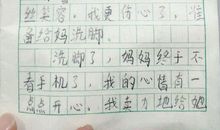 丝笑容。我更伤心了，准
备给妈洗脚。
洗脚了，妈妈终于不
看手机了，我的心暂有一
点点开心。我卖力地给她